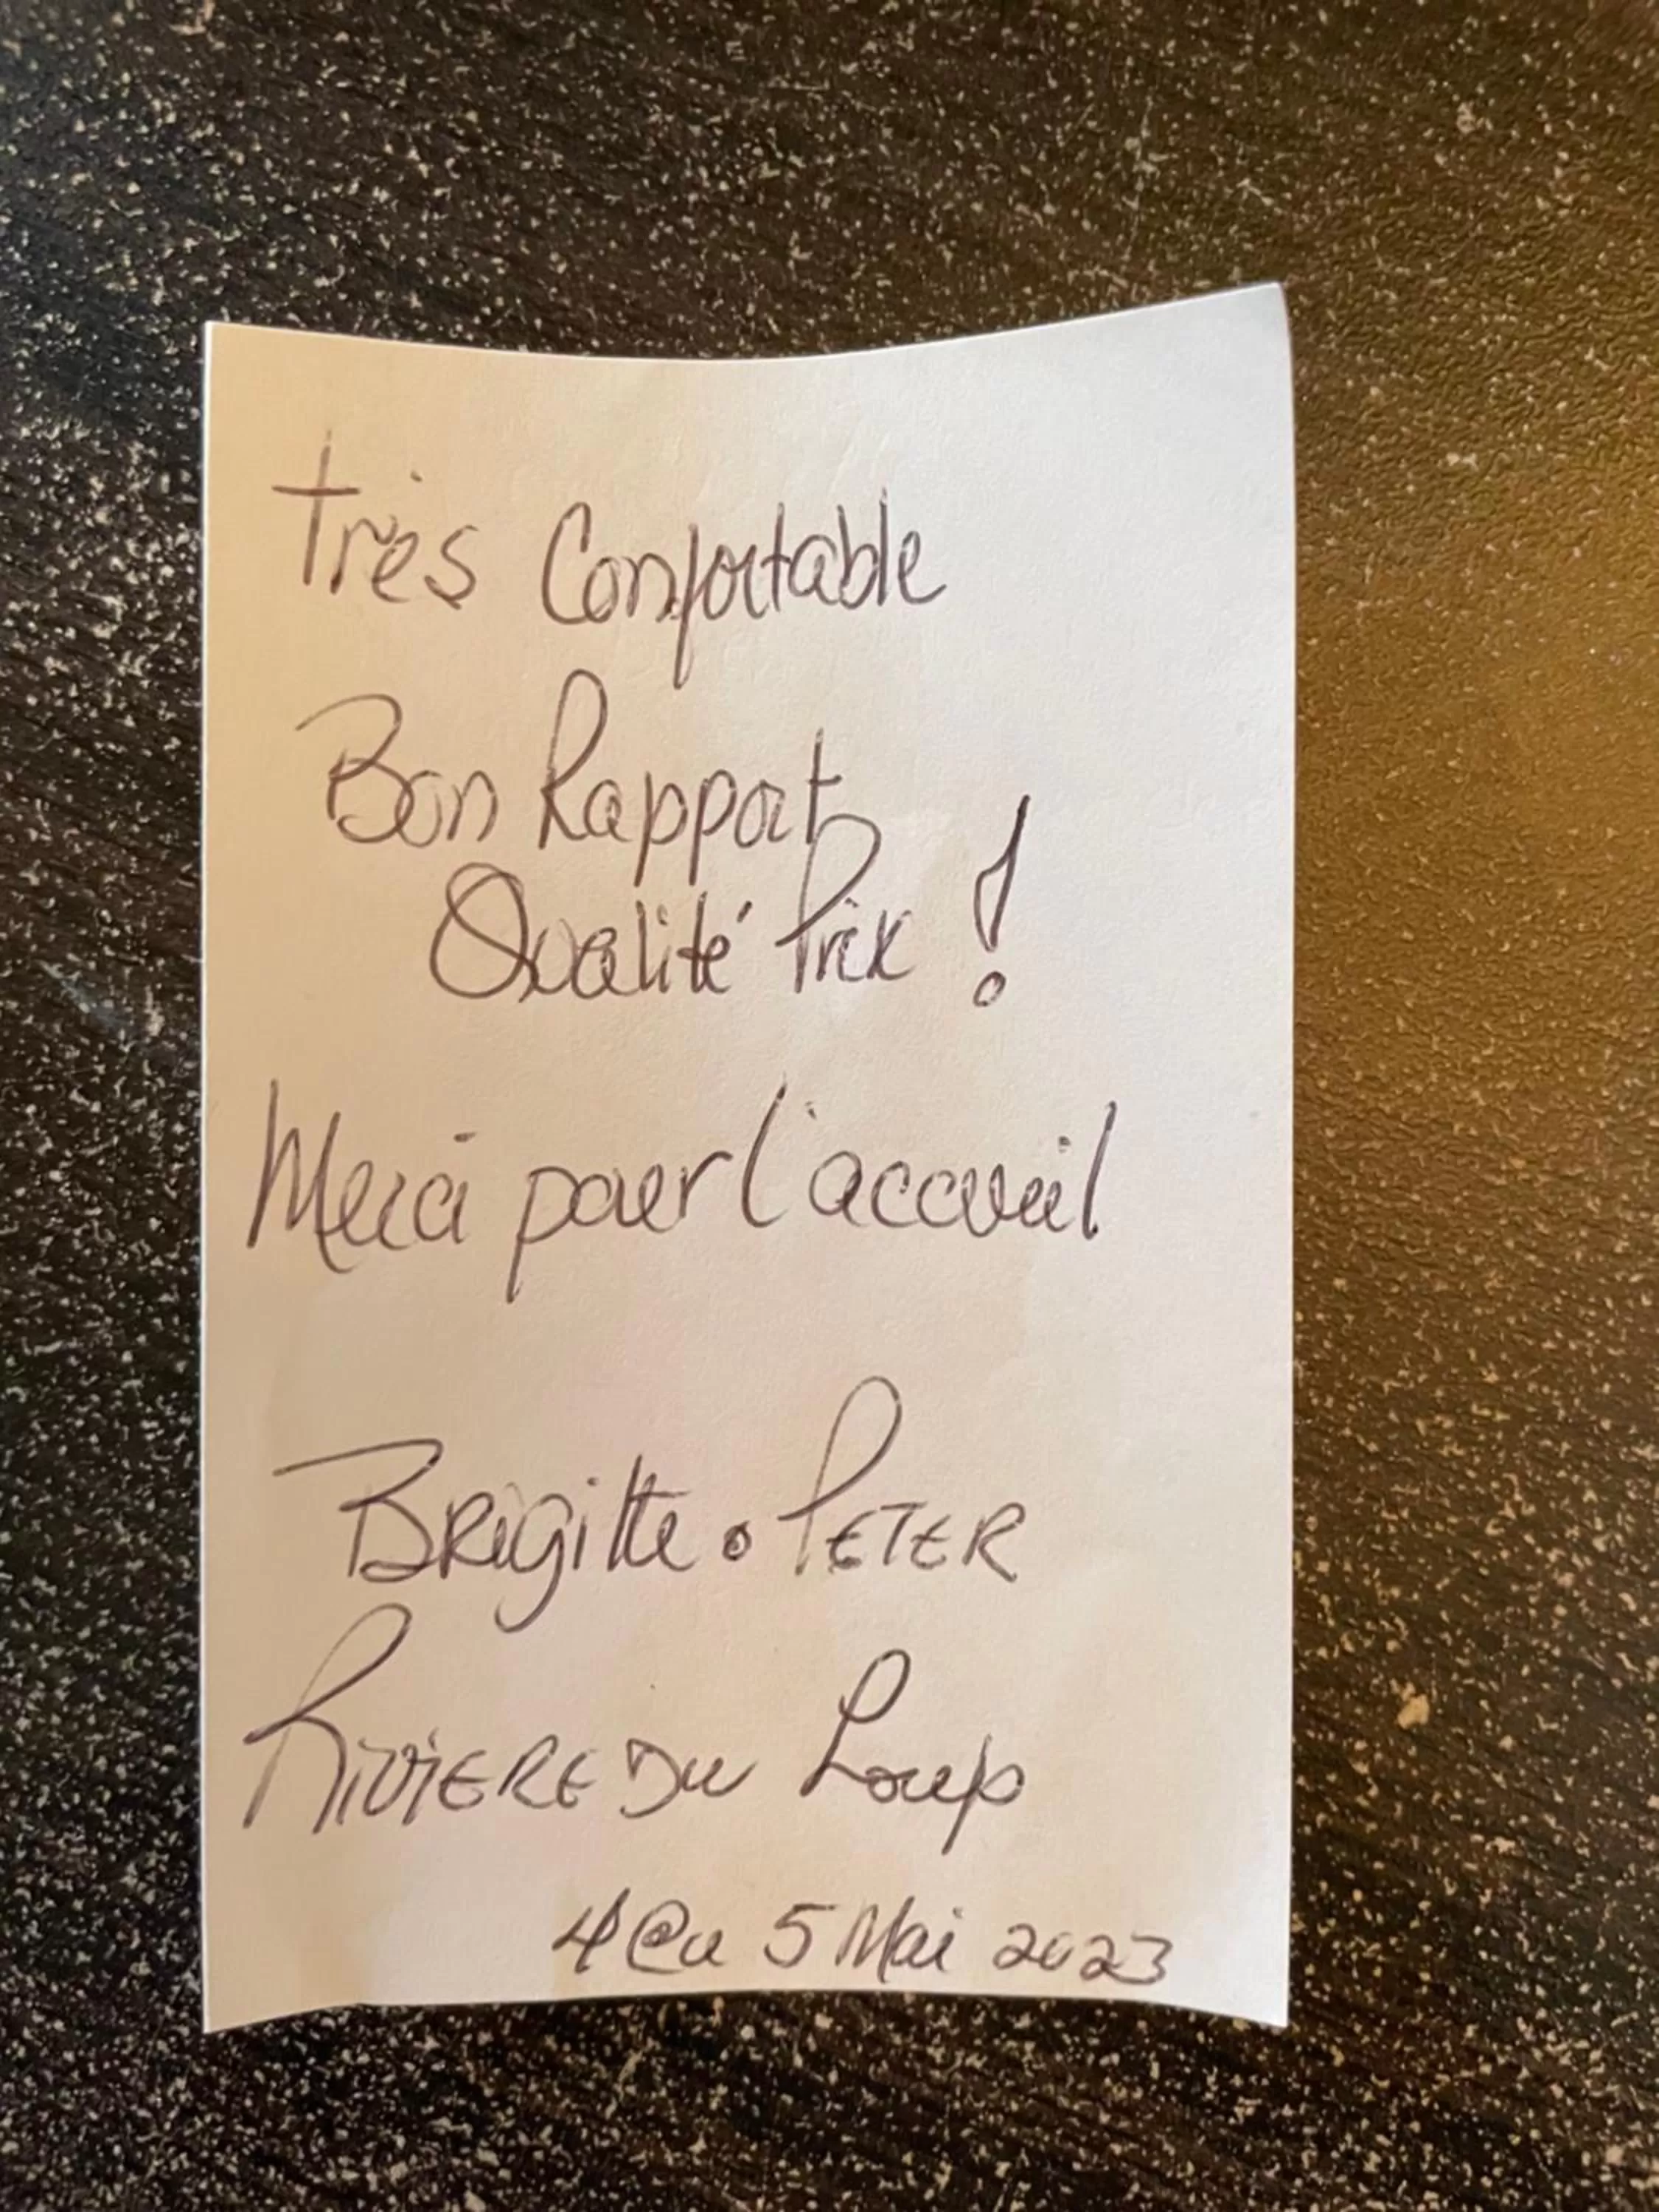 très Confortable
Bon Rapport
Qualité Prix !
Merci pour l'accueil
BRigitte • PETER
RIVIERE DU Loup
4 @u 5 Mai 2023